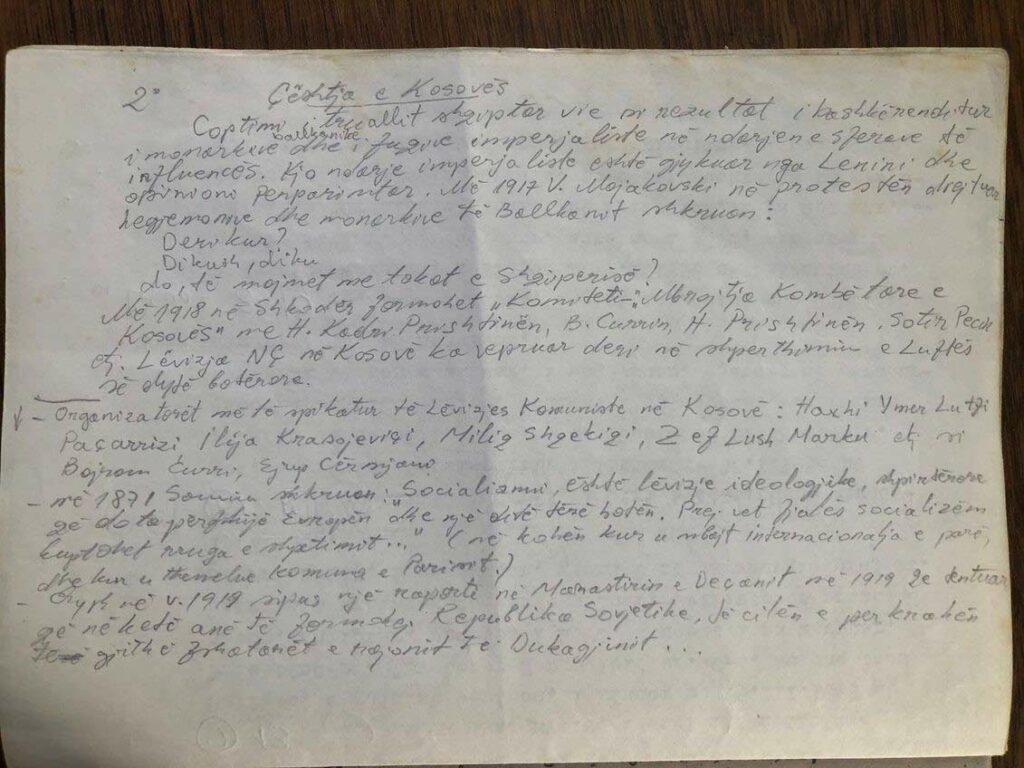 2° Çështja e Kosovës
Coptimi i truallit shqiptar vie si rezultat i bashkërenditur
ballkanike
i monarkive dhe i fuqive imperjaliste në ndarjen e sferave të
influencës. Kjo ndarje imperjaliste është gjykuar nga Lenini dhe
opinioni përparimtar. Më 1917 V. Majakovski në protestën drejtuar
hegjemonive dhe monarkive të Ballkanit shkruan:
Deri kur?
Dikush, diku
do, të majmet me tokat e Shqiperisë?
Më 1918 në Shkodër formohet „Komiteti - Mbrojtja Kombëtare e
Kosovës" me H. Kadri Prishtinën, B. Currin, H. Prishtinën, Sotir Pecin
etj. Lëvizja NÇ në Kosovë ka vepruar deri në shpërthimin e Luftës
së dytë botërore.
- Organizatorët më të spikatur të Lëvizjes Komuniste në Kosovë: Haxhi Ymer Lutfi
Paçarrizi Ilija Krasojeviqi, Miliq Shqekiqi, Zef Lush Marku etj si
Bajram Curri, Ejup Cërnjani
- më 1871 Samiu shkruan: "Socializmi, është lëvizje ideologjike, shpirtërore
që do ta përfshijë Evropën dhe një ditë tërë botën. Prej vet fjalës socializëm
kuptohet rruga e shpëtimit..." (në kohën kur u mbajt internacionalja e parë,
dhe kur u themelue Komuna e Parisit.)
- në v. 1919 sipas një raporti në Manastirin e Deçanit më 1919 qe tentuar
që në këtë anë të formohej Republika Sovjetike, të cilën e përkrahën
gjithë fshatarët e rajonit të Dukagjinit...